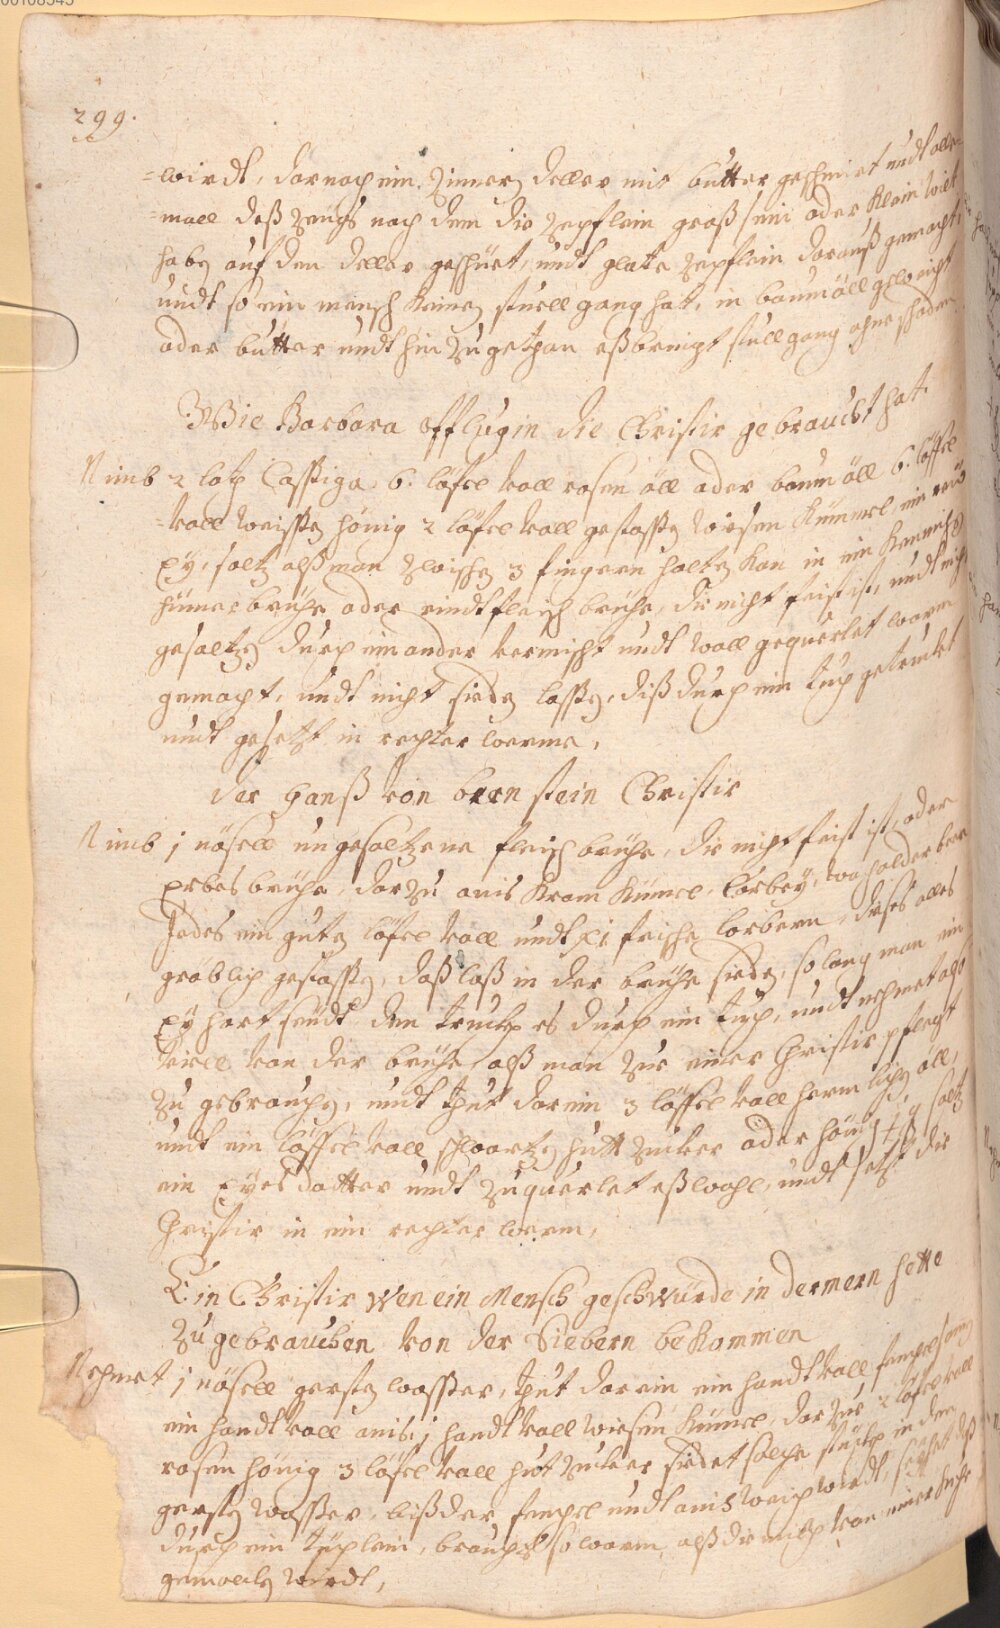 299.
=wirdt, darnach ein Zinnern deller mit butter geschmirt undt alle=
=mall daß Zeugs nach dem die Zepflein groß sein oder klein wilt
haben auf den deller geschüet, undt glate Zepflein darauß gemacht,
undt so ein mensch keinen stuell gang hat, in baum öll geweicht
oder butter undt hin Zu gethan eß bringt stull gang ohne schaden
Wie Barbara Offlugin die Christir gebraucht hat.
Nimb 2 loth Cassiga, 6. löffel voll rosen öll oder baum öll, 6. löffel
=voll weissen hönig 2 löfel voll gestossen wiesen Kümmel, ein rau
Ey, saltz alß man Zwischen 3 fingern halten kan in ein
hüner brühe oder rindtfleisch brühe, die nicht feist ist, undt nicht
gesaltzen durch einander vermischt undt woll gequerlet warm
gemacht, undt nicht sieden lassen, diß durch ein tuch getruckt
undt gesetzt in rechter werme,
der Hanß von bernstein Christir
Nimb j nösell ungesaltzene fleisch brühe, die nicht feist ist, oder
Erbes brühe, darzu anis kram kümel, lorbey, wachalder beer
Jedes ein guten löfel voll undt xi frische lorbern, dieses alles
groblich gestossen, daß laß in der brühe sieden, so lang man ein
Ey hart seudt den truckh es durch ein tuch, undt nehmet alß
viell von der brühe alß man Zue einer Christir pflegt
Zu gebrauchen, undt thut darein 3 löffel voll öll,
undt ein löffel voll schwartzen hutt Zucker oder hönig saltz
ein Eyer dotter undt Zuquerlet eß wohl, undt setzt die
Christir in ein rechter werm,
Ein Christir wen ein Mensch geschwürde in dermern hette
Zu gebrauchen von der Siebern bekommen
Nehmet j nösell gersten wasser, thut darein ein handt voll fenchel
ein handt voll anis, j handt voll wiesen kümel, dar Zue 2 löfel voll
rosen hönig 3 löfel voll hut Zucker siedet solche stückh in dem
gersten wasser, biß der fenchel undt anis weich wirdt, seihet daß
durch ein tüchlein, brauchet so warm, alß die milch von einer Kuhe
gemolcken wirdt,